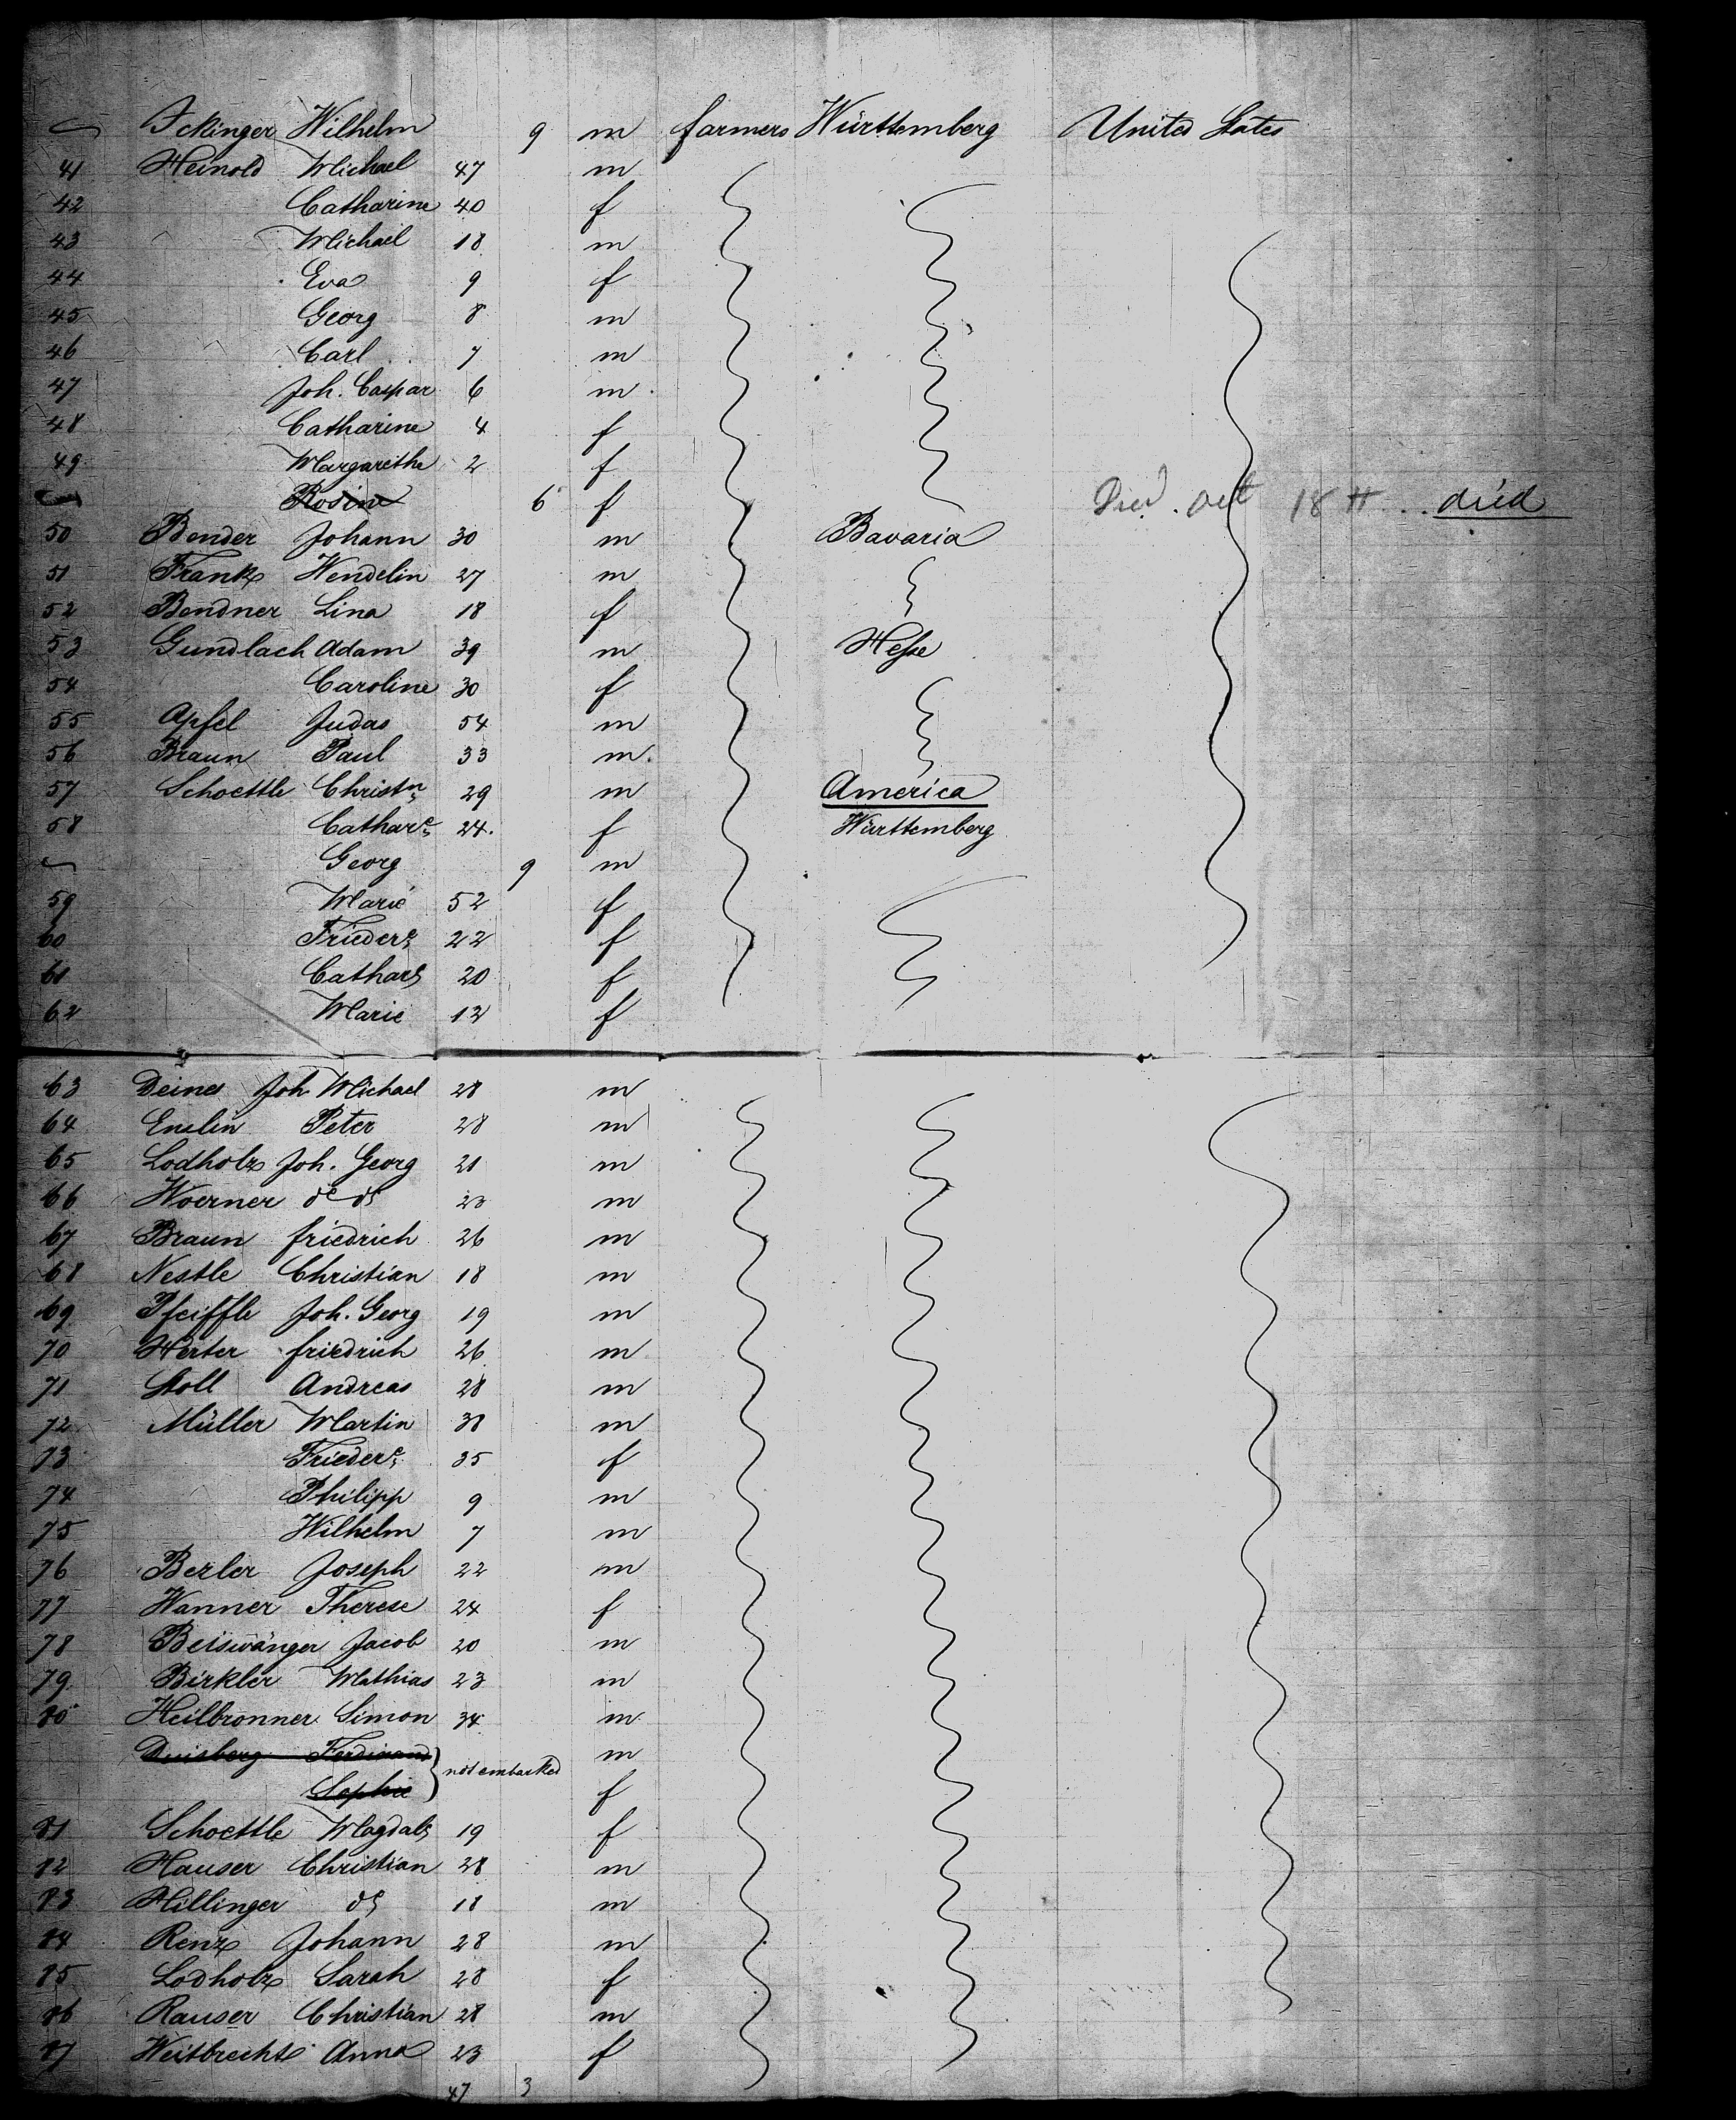 Ickinger Wilhelm 9 m farmers Württemberg United States
41 Heinold Michael 47 m
42 Catharine 40 f
43 Michael 18 m
44 Eva 9 f
45 Georg 8 m
46 Carl 7 m
47 Joh. Caspar 6 m
48 Catharine 4 f
49 Margarethe 2 f
Rosine 6 f Died. Oct 18th .. died
50 Bender Johann 30 m Bavaria
51 Frank Wendelin 27 m
52 Bendner Lina 18 f
53 Gundlach Adam 39 m Hesse
54 Caroline 30 f
55 Apfel Judas 54 m
56 Braun Paul 33 m
57 Schoettle Christn 29 m America
58 Cathare 24. f Württemberg
Georg 9 m
59 Marie 52 f
60 Friedere 22 f
61 Cathare 20 f
62 Marie 12 f
63 Deines Joh Michael 28 m
64 Enslin Peter 28 m
65 Lodholz Joh. Georg 21 m
66 Woerner do do 23 m
67 Braun friedrich 26 m
68 Nestle Christian 18 m
69 Pfeiffle Joh. Georg 19 m
70 Herter friedrich 26 m
71 Stoll Andreas 28 m
72 Müller Martin 38 m
73 Friedere 35 f
74 Philipp 9 m
75 Wilhelm 7 m
76 Berler Joseph 22 m
77 Wanner Therese 24 f
78 Beiswänger Jacob 20 m
79 Birkler Mathias 23 m
80 Heilbronner Simon 34 m
Duisberg Ferdinand m
not embarked
Sophie f
81 Schoettle Magdale 19 f
82 Hauser Christian 28 m
83 Hillinger do 18 m
84 Renz Johann 28 m
85 Lodholz Sarah 28 f
86 Rauser Christian 28 m
87 Weitbrecht Anna 23 f
47 3